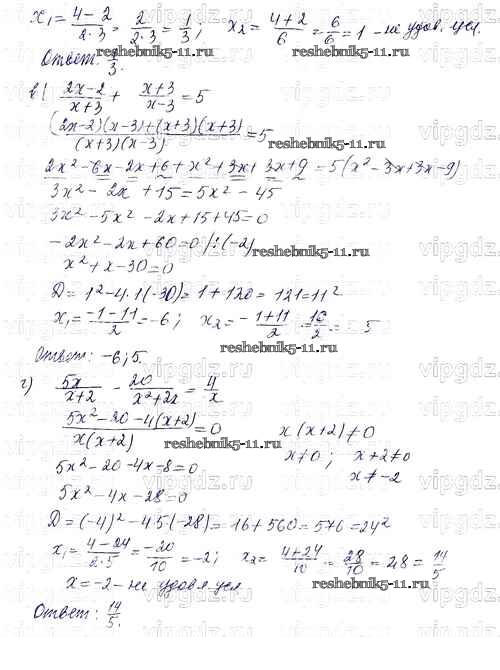 x₁ = (4−2)/(2·3) = 2/(2·3) = 1/3; x₂ = (4+2)/6 = 6/6 = 1 – не удов. усл.
Ответ: 1/3.
reshebnik5-11.ru
в) (2x−2)/(x+3) + (x+3)/(x−3) = 5
((2x−2)(x−3)+(x+3)(x+3))/((x+3)(x−3)) = 5
reshebnik5-11.ru
2x²−6x−2x+6+x²+3x+3x+9 = 5(x²−3x+3x−9)
3x²−2x+15=5x²−45
3x²−5x²−2x+15+45=0
−2x²−2x+60=0 /:(−2)
reshebnik5-11.ru
x²+x−30=0
D=1²−4·1(−30)=1+120=121=11²
x₁=(−1−11)/2=−6; x₂=(−1+11)/2=10/2=5
reshebnik5-11.ru
Ответ: −6; 5.
г) 5x/(x+2) − 20/(x²+2x) = 4/x
(5x²−20−4(x+2))/(x(x+2))=0 x(x+2)≠0
reshebnik5-11.ru
x≠0; x+2≠0
5x²−20−4x−8=0 x≠−2
5x²−4x−28=0
D=(−4)²−4·5(−28)=16+560=576=24²
x₁=(4−24)/10=−20/10=−2; x₂=(4+24)/10=28/10=2,8=14/5
reshebnik5-11.ru
x=−2 – не удов усл
Ответ: 14/5.
vipgdz.ru